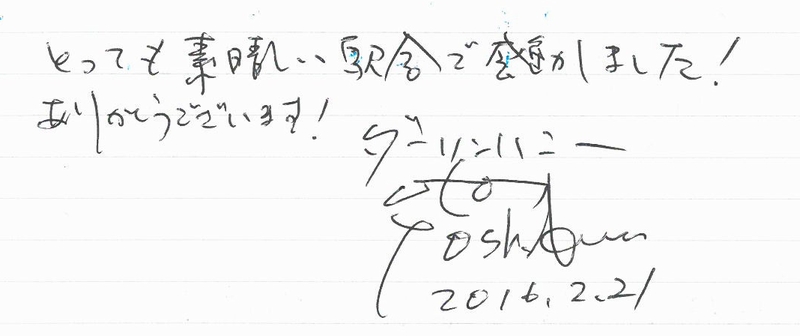 とっても素晴しい駅舎で感動しました!
ありがとうございます!
ダーリンハニー
2016.2.21